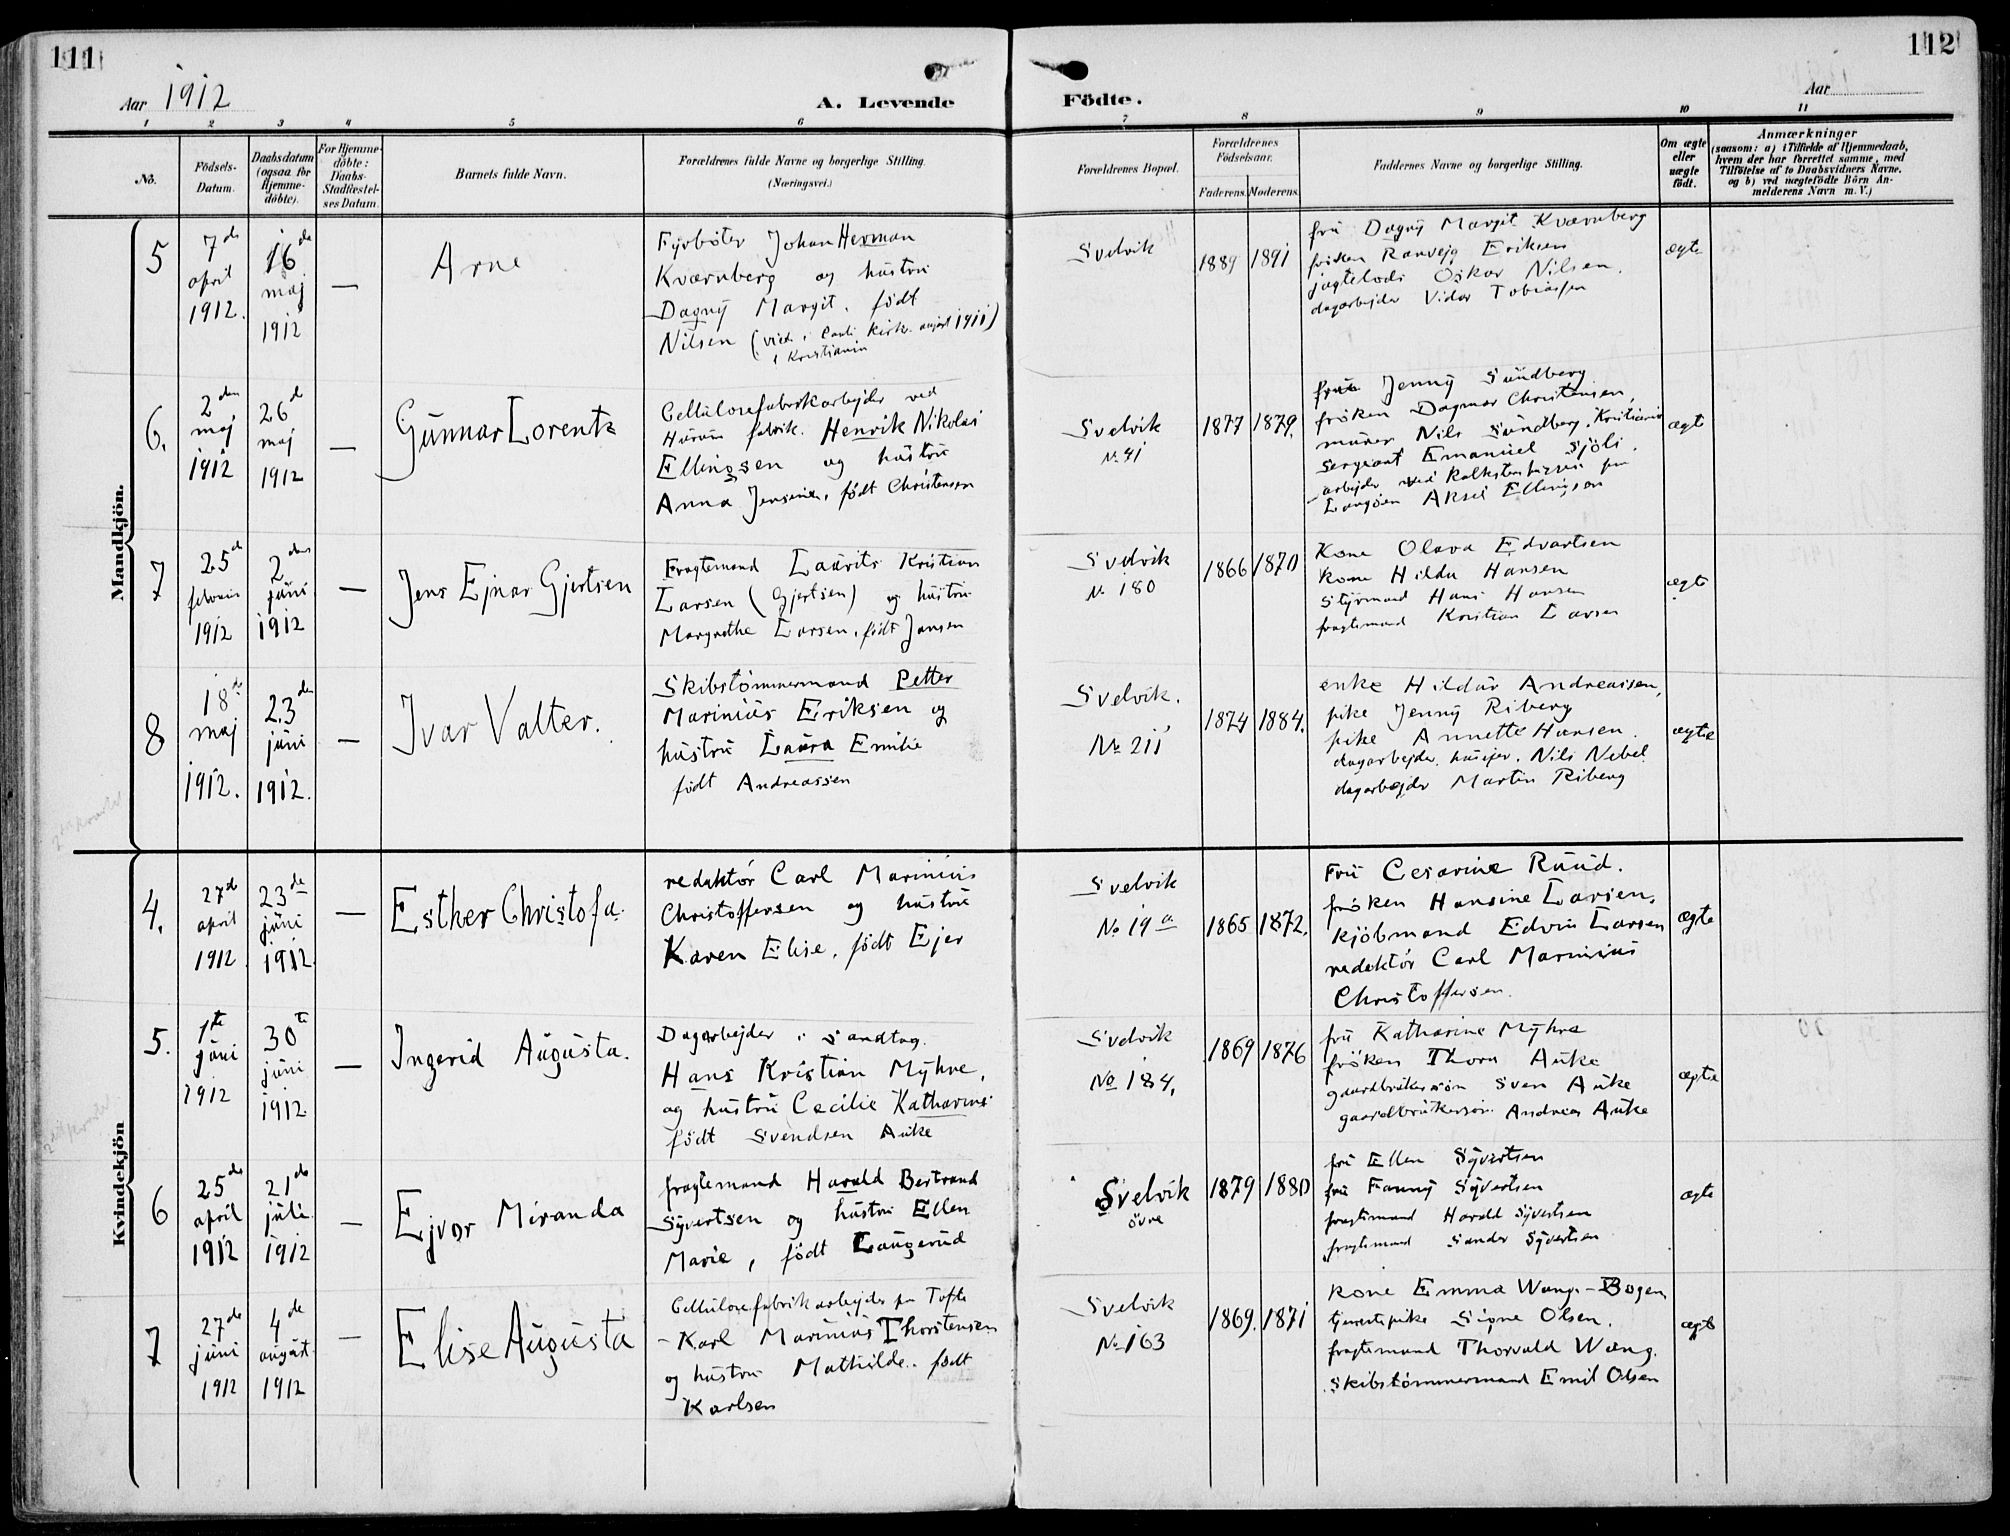 111
112
Aar 1912
A. Levende
Födte.
Aar
1
2
3
4
5
6
7
8
9
10
11
No.
Födsels-
Datum.
Daabsdatum
(ogsaa for
Hjemme-
döbte).
For Hjemme-
döbte:
Daabs-
Stadfæstel-
ses Datum.
Barnets fulde Navn.
Forældrenes fulde Navne og borgerlige Stilling.
(Næringsvei.)
Forældrenes Bopæl.
Forældrenes
Födselsaar.
Faderens.
Moderens.
Faddernes Navne og borgerlige Stilling.
Om ægte
eller
uægte
födt.
Anmærkninger
(saasom: a) i Tilfælde af Hjemmedaab,
hvem der har forrettet samme, med
Tilföielse af to Daabsvidners Navne.
og b) ved uægtefödte Börn An-
melderens Navn m. V.)
Mandkjön.
5
7de
april
1912.
16de
maj
1912
—
Arne
Fyrböter Johan Herman
Kværnberg og hustru
Dagny Margit, född
Nilsen (viet i Pauli kirke august 1911)
i Kristiania
Svelvik
1889
1891
fru Dagny Margit Kværnberg
fröken Ranveig Eriksen
jagtelods Oskar Nilsen.
dagarbejder Vidar Tobiassen
ægte
6.
2den
maj
1912
26de
maj
1912
—
Gunnar Lorentz
Cellulosefabrikarbejder ved
Hurum fabrik. Henrik Nikolai
Ellingsen og hustru
Anna Jensine, födt Christensen
Svelvik
No 41
1877
1879.
frue Jenny Sundberg
fröken Dagmar Christensen,
murer Nils Sundberg, Kristiania
sergeant Emanuel Sjöli.
arbejder ved
Langöen Aksel Ellingsen
ægte
7
25de
februar
1912
2den
juni
1912
—
Jens Ejnar Gjertsen
Fragtemand Laurits Kristian
Larsen (Gjertsen) og hustru
Margrethe Larsen, födt Jansen
Svelvik
No 180
1866
1870
Kone Olava Edvartsen
Kone Hilda Hansen
Styrmand Hans Hansen
fragtemand Kristian Larsen
ægte
8
18de
maj
1912.
23de
juni
1912.
—
Ivar Valter.
Skibstömmermand Petter
Marinius Eriksen og
hustru Laura Emilie
födt Andreassen
Svelvik.
No 211
1874
1884.
enke Hildur Andreassen,
pike Jenny Riberg
pike Annette Hansen.
dagarbejder, husejer, Nils Nebel
dagarbejder Martin Riberg
ægte
Kvindekjön
4.
27de
april
1912
23de
juni
1912.
—
Esther Christofa.
redaktör Carl Marinius
Christoffersen og hustru
Karen Elise, födt Ejer
Svelvik
No 19 a
1865
1872.
Fru Cesarine Ruud.
fröken Hansine Larsen,
kjöbmand Edvin Larsen
redaktör Carl Marinius
Christoffersen.
ægte
5.
1ste
juni
1912
30te
juni
1912.
—
Ingerid Augusta.
Dagarbejder i Sandtag.
Hans Kristian Myhre,
og hustru Cecilie Katharine
födt Svendsen Auke
Svelvik
No 184.
1869
1876
fru Katharine Myhre
fröken Thora Auke
gaardbrukersön Sven Auke
gaardbrukersön Andreas Auke
ægte
6
25de
april
1912
21de
juli
1912
—
Ejvor Miranda
fragtemand Harald Bertrand
Syvertsen og hustru Ellen
Marie, födt Laugerud
Svelvik
övre
1879
1880
fru Ellen Syvertsen
fru Fanny Syvertsen
fragtemand Harald Syvertsen
fragtemand Sander Syvertsen
ægte
7
27de
juni
1912
4de
august
1912
—
Elise Augusta
Cellulosefabrikarbejder paa Tofte
Karl Marinius Thorstensen
og hustru Mathilde, födt
Karlsen
Svelvik
No 163
1869.
1871
Kone Emma Wang-Bogen
tjenestepike Signe Olsen.
fragtemand Thorvald Wang.
Skibstömmermand Emil Olsen
ægte